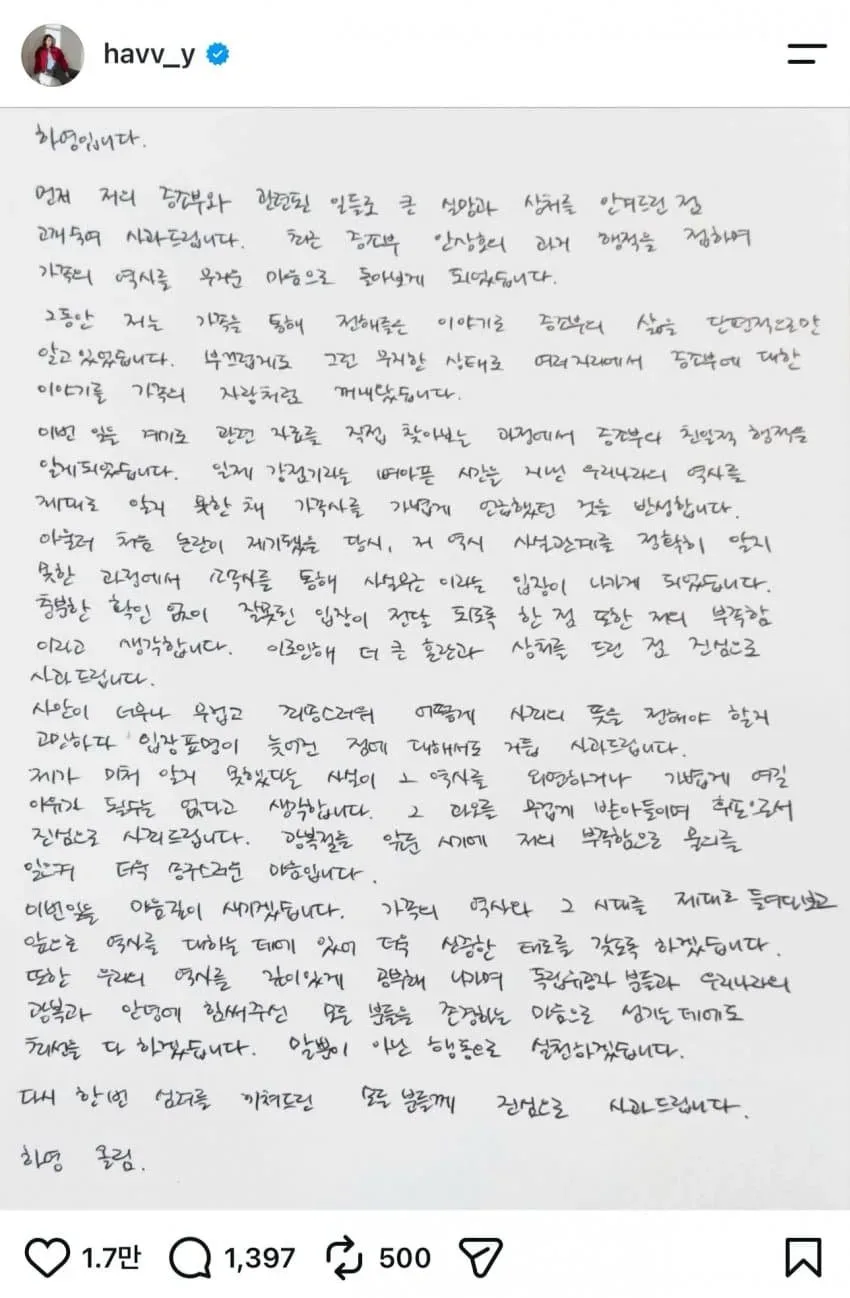 havv_y
하영입니다.
먼저 저의 증조부와 관련된 일들로 큰 실망과 상처를 안겨드린 점
고개숙여 사과드립니다. 최근 증조부 안상호의 과거 행적을 접하며
가족의 역사를 무거운 마음으로 돌아보게 되었습니다.
그동안 저는 가족을 통해 전해들은 이야기로 증조부의 삶을 단편적으로만
알고 있었습니다. 부끄럽게도 그런 무지한 상태로 여러 자리에서 증조부에 대한
이야기를 가족의 자랑처럼 꺼내놨습니다.
이번 일을 계기로 관련 자료를 직접 찾아보는 과정에서 증조부의 친일적 행적을
알게 되었습니다. 일제 강점기라는 뼈아픈 시간을 지난 우리나라의 역사를
제대로 알지 못한 채 가족사를 가볍게 언급했던 것을 반성합니다.
아울러 처음 논란이 제기됐을 당시, 저 역시 사실관계를 정확히 알지
못한 과정에서 소속사를 통해 사실무근 이라는 입장이 나가게 되었습니다.
충분한 확인 없이 잘못된 입장이 전달 되도록 한 점 또한 저의 부족함
이라고 생각합니다. 이로인해 더 큰 혼란과 상처를 드린 점 진심으로
사과드립니다.
사안이 너무나 무겁고 죄송스러워 어떻게 사죄의 뜻을 전해야 할지
고민하다 입장표명이 늦어진 점에 대해서도 거듭 사과드립니다.
제가 미처 알지 못했다는 사실이 그 역사를 외면하거나 가볍게 여길
이유가 될수는 없다고 생각합니다. 그 과오를 무겁게 받아들이며 후손으로서
진심으로 사죄드립니다. 광복절을 앞둔 시기에 저의 부족함으로 물의를
일으켜 더욱 송구스러운 마음입니다.
이번일을 마음깊이 새기겠습니다. 가족의 역사와 그 시대를 제대로 들여다보고
앞으로 역사를 대하는 데에 있어 더욱 신중한 태도를 갖도록 하겠습니다.
또한 우리의 역사를 깊이있게 공부해 나가며 독립유공자 분들과 우리나라의
광복과 안녕에 힘써주신 모든 분들을 존경하는 마음으로 섬기는 데에도
최선을 다 하겠습니다. 말뿐이 아닌 행동으로 실천하겠습니다.
다시 한번 심려를 끼쳐드린 모든 분들께 진심으로 사과드립니다.
하영 올림.
1.7만 1,397 500